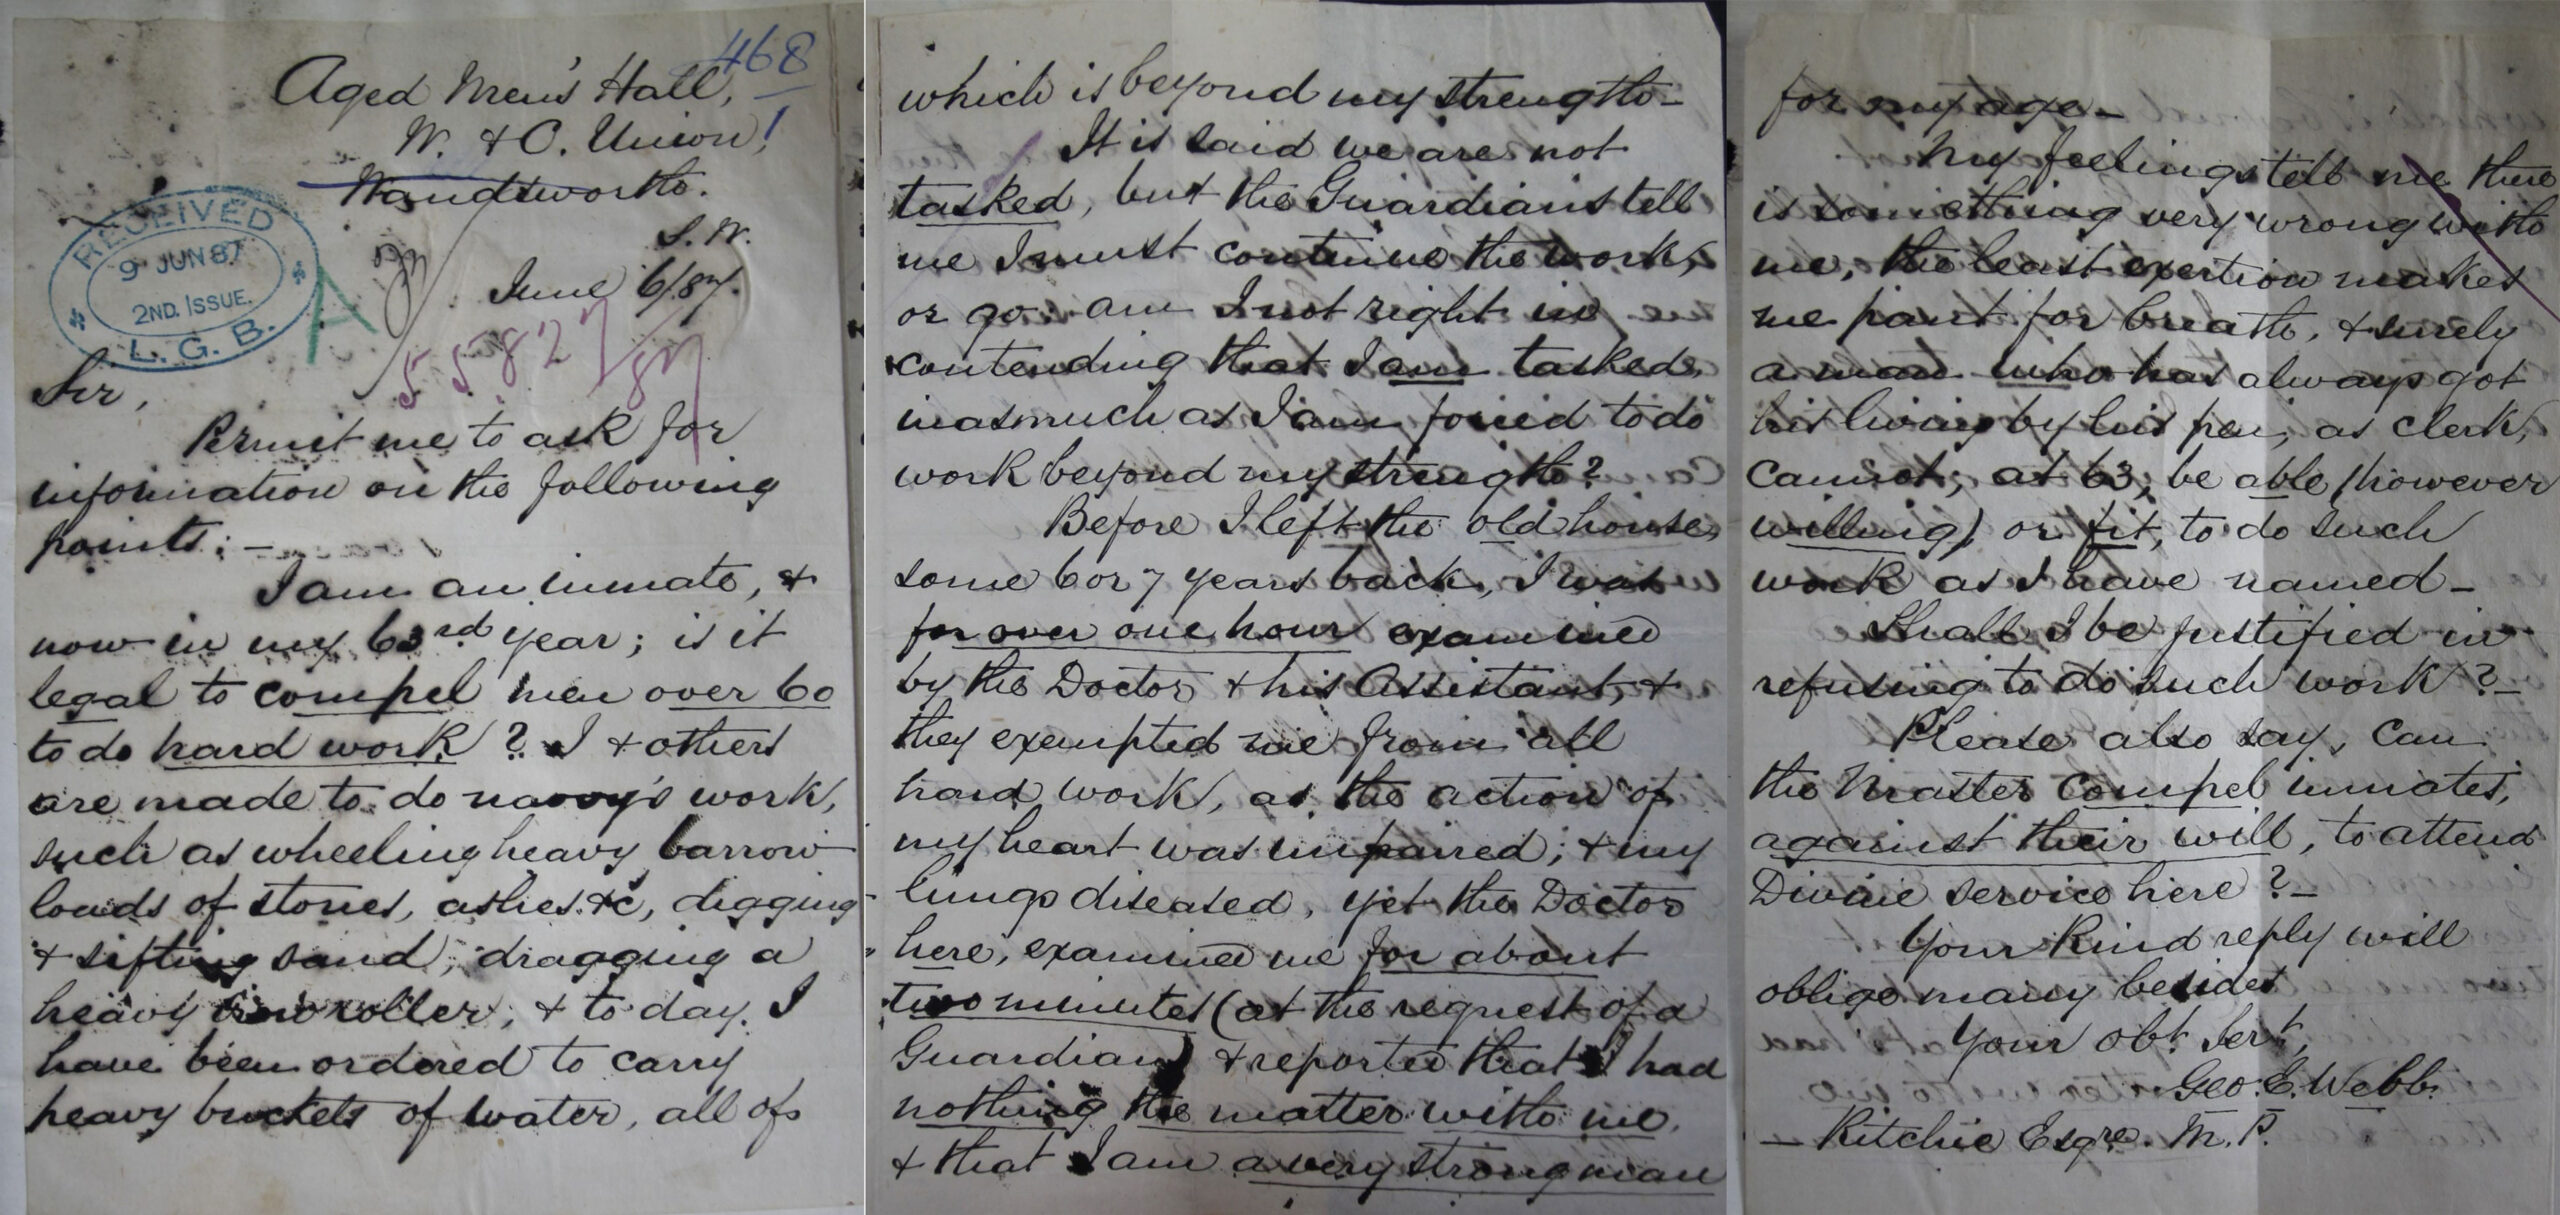 468
Aged Men's Hall,
W. & C. Union,
Wandsworth.
S.W.
June 6/87.
RECEIVED
9 JUN 87
2ND. ISSUE.
L. G. B.
A
55827/87
Sir,
Permit me to ask for
information on the following
points: —
I am an inmate, &
now in my 63rd year; is it
legal to compel men over 60
to do hard work? I & others
are made to do navvy's work,
such as wheeling heavy barrow
loads of stones, ashes &c, digging
& sifting sand, dragging a
heavy iron roller; & to day I
have been ordered to carry
heavy buckets of water, all of
which is beyond my strength—
It is said we are not
tasked, but the Guardians tell
me I must continue the work,
or go. am I not right in
contending that I am tasked,
inasmuch as I am forced to do
work beyond my strength?
Before I left the old house,
some 6 or 7 years back, I was
for over one hour examined
by the Doctor & his Assistant, &
they exempted me from all
hard work, as the action of
my heart was impaired; & my
lungs diseased, yet the Doctor
here, examined me for about
two minutes (at the request of a
Guardian) & reported that I had
nothing the matter with me,
& that I am a very strong man
for my age—
My feelings tell me there
is something very wrong with
me, the least exertion makes
me pant for breath, & surely
a man who has always got
his living by his pen, as clerk,
cannot, at 63, be able (however
willing) or fit, to do such
work as I have named—
Shall I be justified in
refusing to do such work?—
Please also say, can
the Master compel inmates,
against their will, to attend
Divine service here?—
Your kind reply will
oblige many besides
Your obt. Sert,
Geo. E. Webb.
— Ritchie Esqre. M.P.